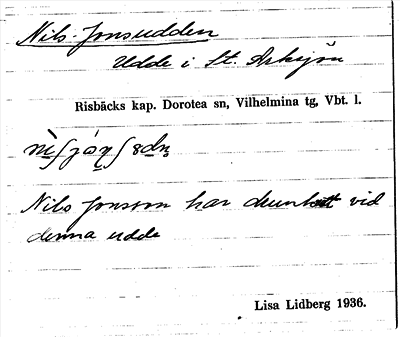 Nils-Jonsudden
Udde i St. Arksjön
Risbäcks kap. Dorotea sn, Vilhelmina tg, Vbt. l.
Nils Jonsson har drunknatt vid
denna udde
Lisa Lidberg 1936.